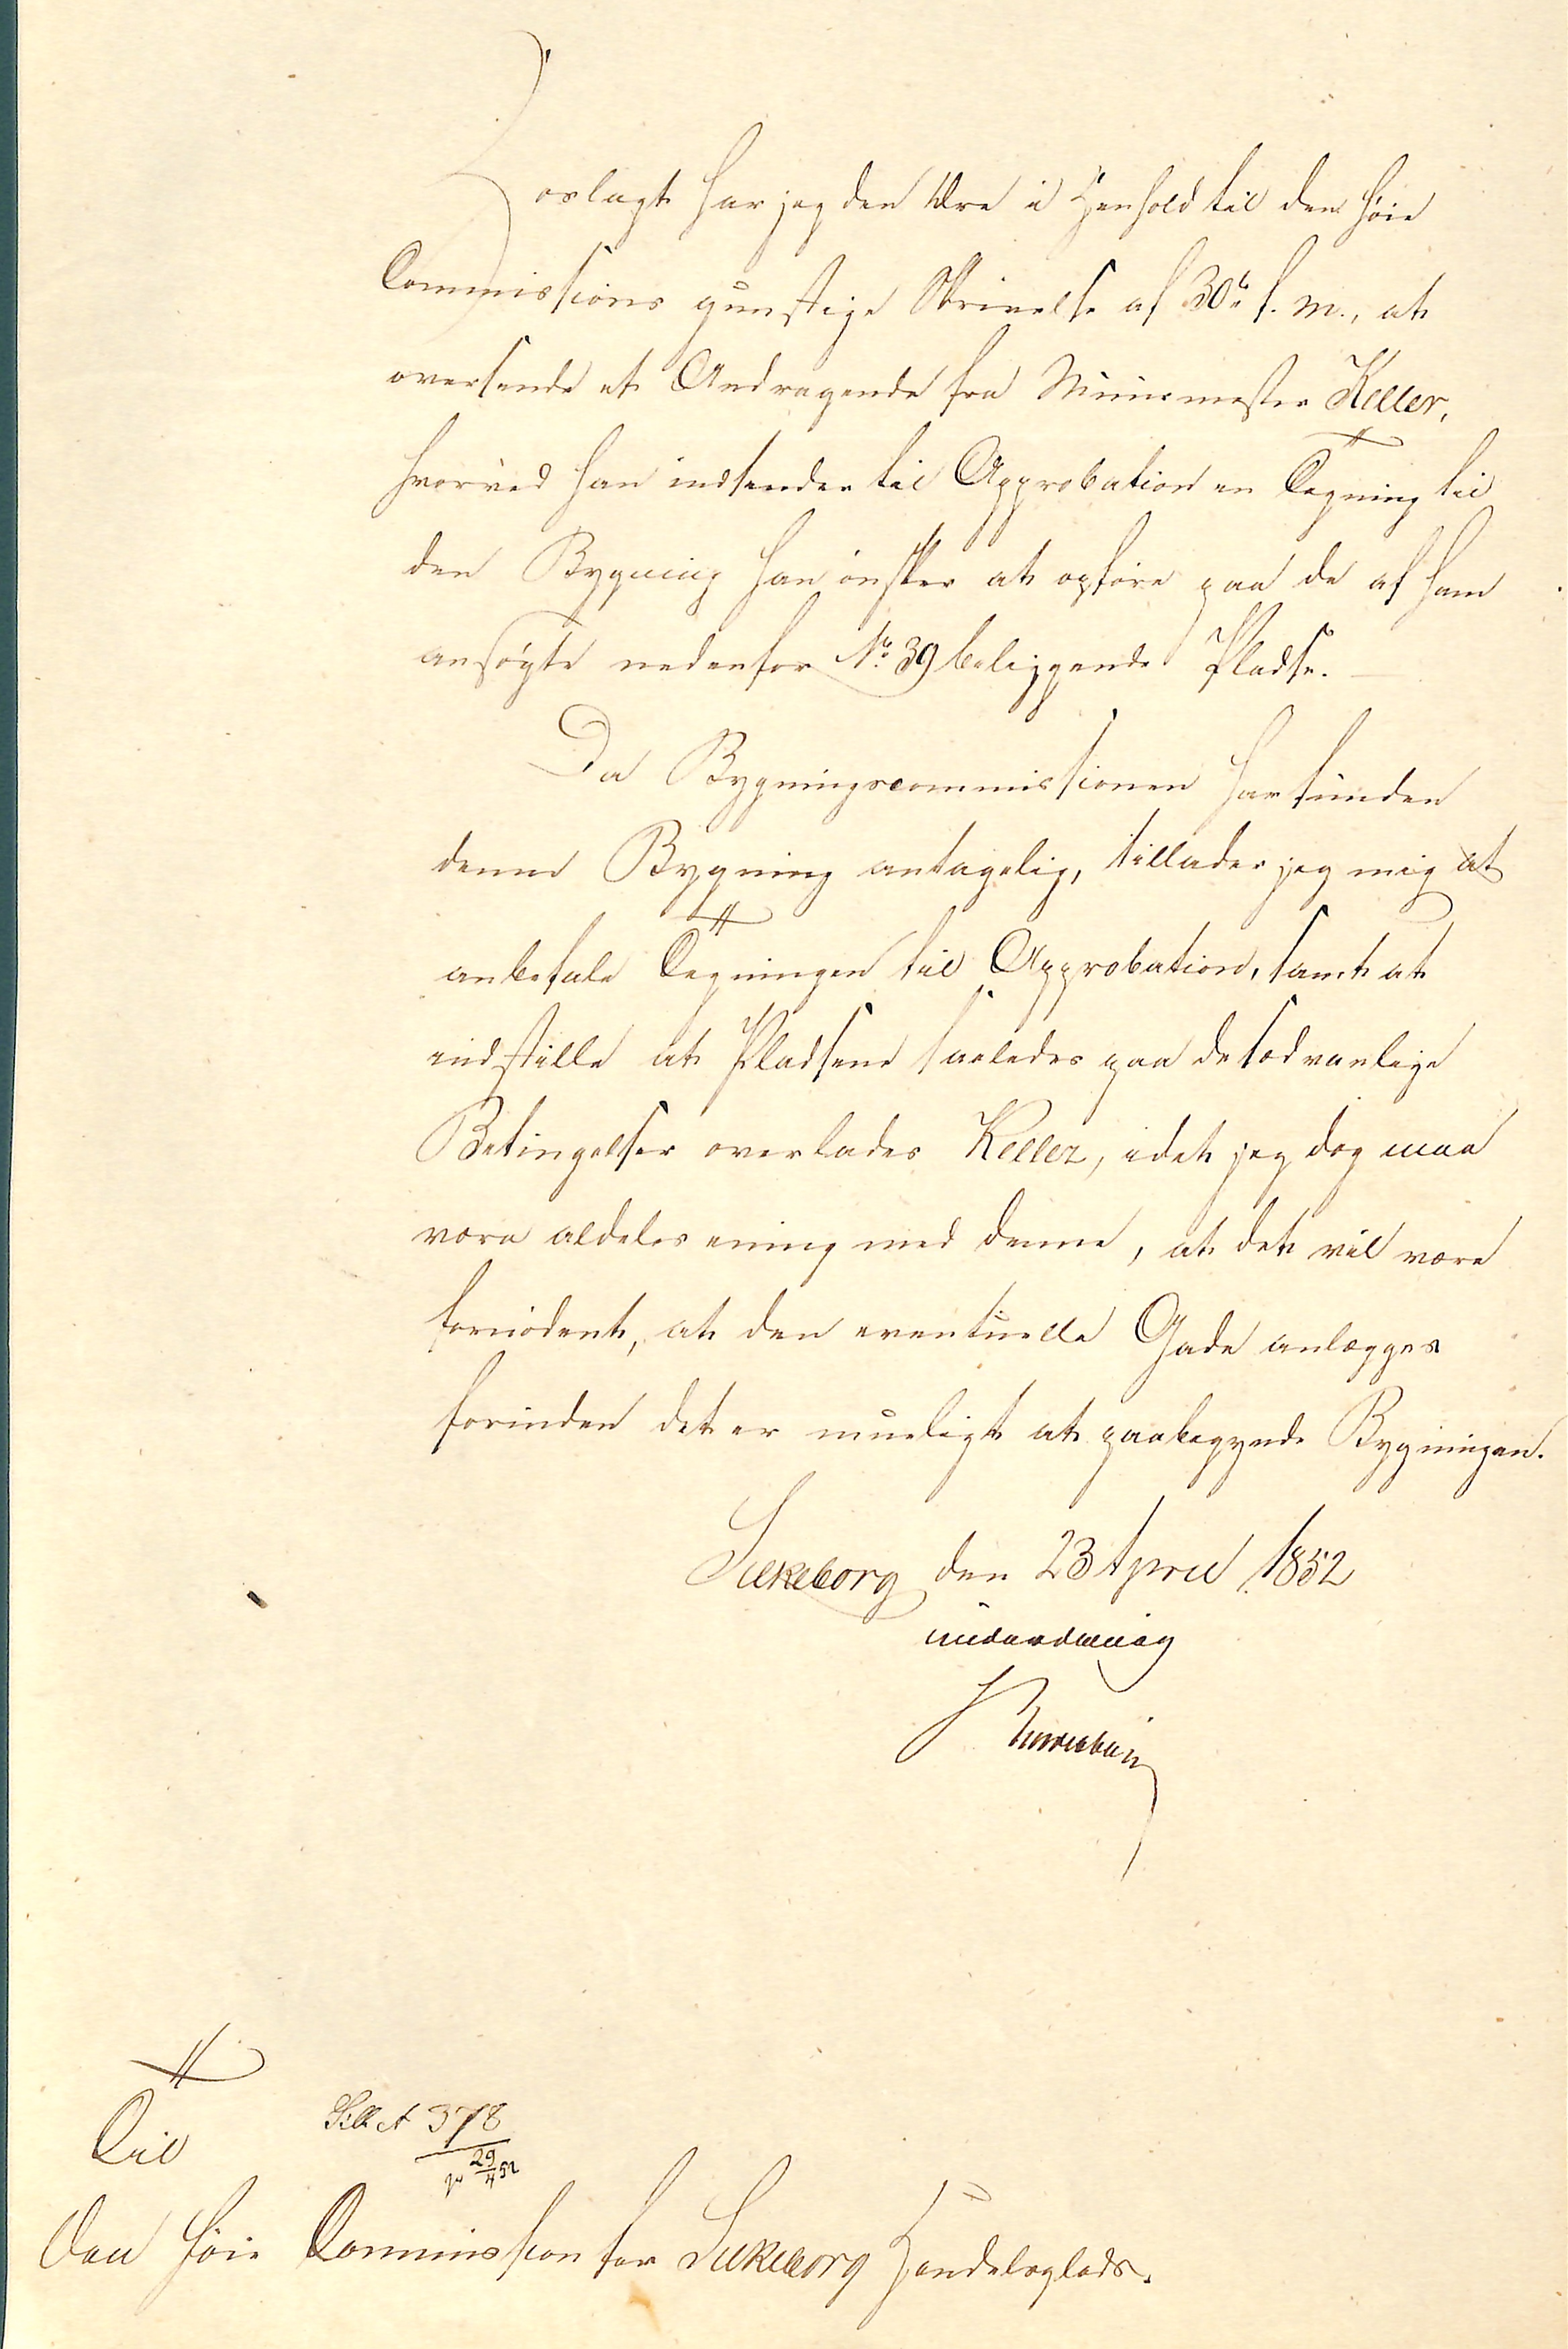 Vedlagt har jeg den Ære i Henhold til den høie
Commissions gunstige Skrivelse af 30te f. M., at
oversende et Andragende fra Muurmester Keller,
hvorved han indsender til Approbation en Tegning til
den Bygning han ønsker at opføre paa de af ham
ansøgte nedenfor No. 39 beliggende Pladse.
Da Bygningscommissionen har funden
denne Bygning antagelig, tillader jeg mig at
anbefale Tegningen til Approbation, samt at
indstille at Pladsene saaledes paa de sædvanlige
Betingelser overlades Keller, idet jeg dog maa
være aldeles eenig med denne, at det vil være
fornødent, at den eventuelle Gade anlægges
forinden det er mueligt at paabegynde Bygningen.
Silkeborg den 23 April 1852
underdanig
Til
Silk A 378
29/4 52
Den høie Commission for Silkeborg Handelsplads.